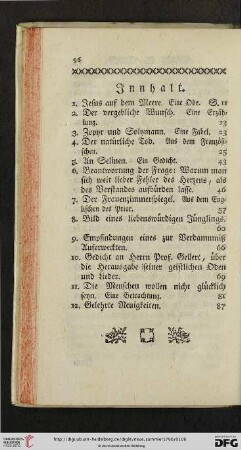 96
Innhalt.
1. Jesus auf dem Meere. Eine Ode. S. 11
2. Der vergebliche Wunsch. Eine Erzäh-
lung. 13
3. Zepyr und Solymann. Eine Fabel. 23
4. Der natürliche Tod. Aus dem Französi-
schen. 25
5. An Selinen. Ein Gedicht. 43
6. Beantwortung der Frage: Warum man
sich weit lieber Fehler des Herzens, als
des Verstandes aufbürden lasse. 46
7. Der Frauenzimmerspiegel. Aus dem Eng-
lischen des Prior. 57
8. Bild eines liebenswürdigen Jünglings.
60
9. Empfindungen eines zur Verdammniß
Auferweckten. 66
10. Gedicht an Herrn Prof. Gellert, über
die Herausgabe seiner geistlichen Oden
und Lieder. 69
11. Die Menschen wollen nicht glücklich
seyn. Eine Betrachtung. 81
12. Gelehrte Neuigkeiten. 87